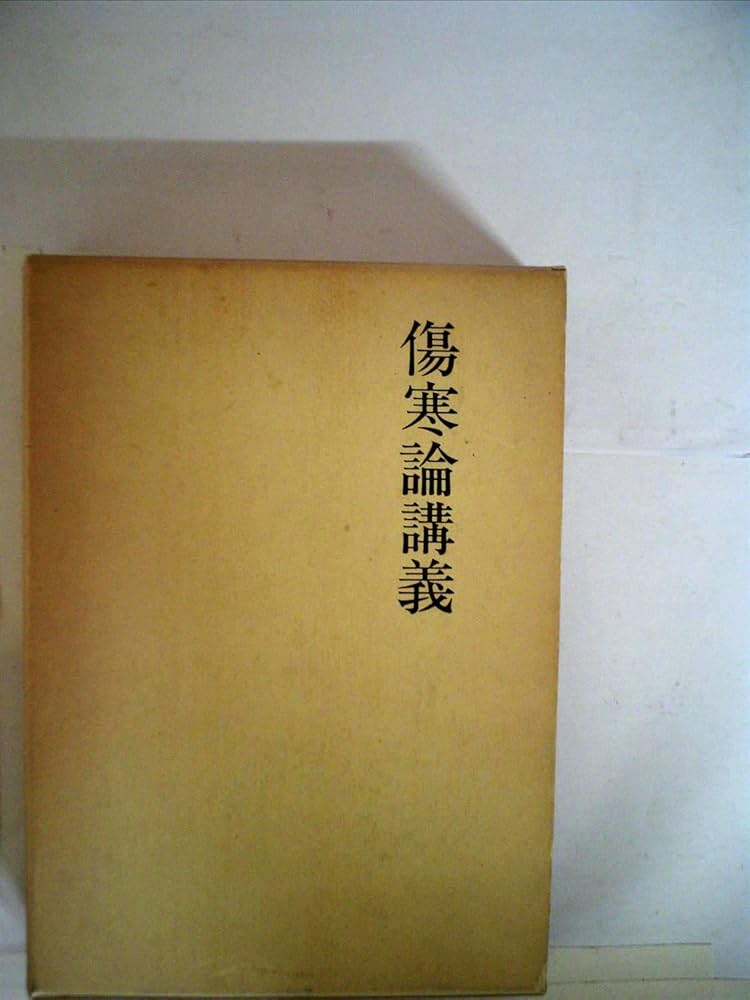 傷寒論講義